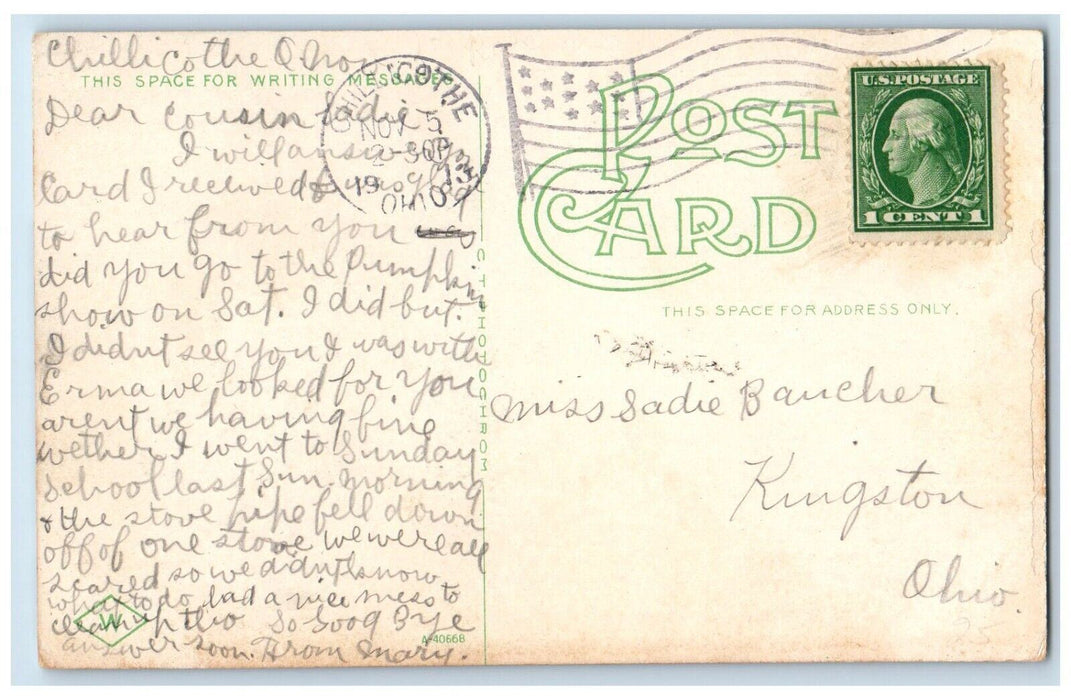 Chillicothe Ohio
THIS SPACE FOR WRITING MESSAGES
Dear Cousin Sadie
I will answer your
Card I received
to hear from you
did you go to the Pumpkin
show on Sat. I did but.
I didnt see you I was with
Erma we looked for you
arent we having fine
wether I went to Sunday
School last Sun. morning
& the stove pipe fell down
off of one stove we were all
scared so we didn't know
what to do, had a nice mess to
clean up tho So Goog Bye
answer soon. From Mary.
W
A-40668
C T PHOTOCHROM
CHILLICOTHE
NOV 5
-30P
1913
OHIO
POST
CARD
U.S. POSTAGE
1 CENT 1
THIS SPACE FOR ADDRESS ONLY.
Miss Sadie Baucher
Kingston
Ohio.
25